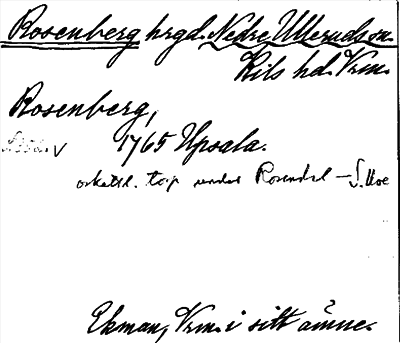 Rosenberg hrgd. Nedre Ulleruds sn.
Kils hd. Vrm.
Rosenberg,
1765 Upsala.
torp under Rosendal – S. Uoe
Ekman, Vrm. i sitt ämne.